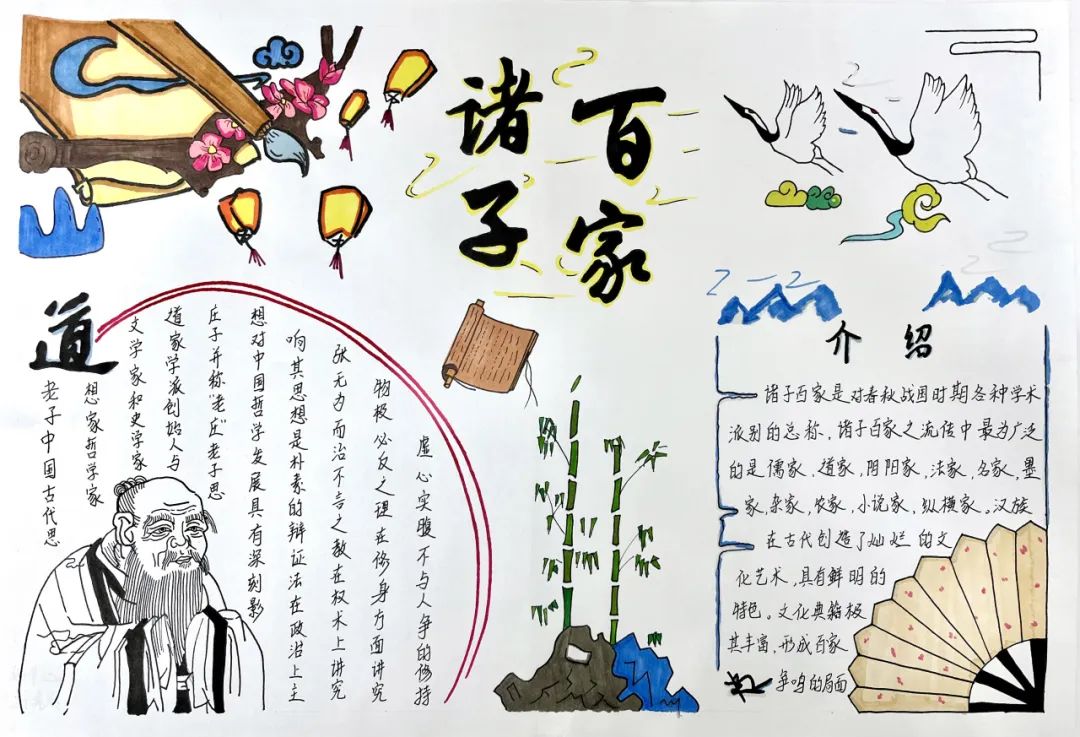 诸子
百家
道
老子中国古代思
想家哲学家
文学家和史学家
道家学派创始人与
庄子并称“老庄”老子思
想对中国哲学发展具有深刻影
响其思想是朴素的辩证法在政治上主
张无为而治不言之教在权术上讲究
物极必反之理在修身方面讲究
虚心实腹不与人争的修持
介绍
诸子百家是对春秋战国时期各种学术
派别的总称,诸子百家之流传中最为广泛
的是儒家、道家,阴阳家,法家,名家,墨
家,杂家,农家,小说家,纵横家。汉族
在古代创造了灿烂的文
化艺术,具有鲜明的
特色。文化典籍极
其丰富,形成百家
争鸣的局面